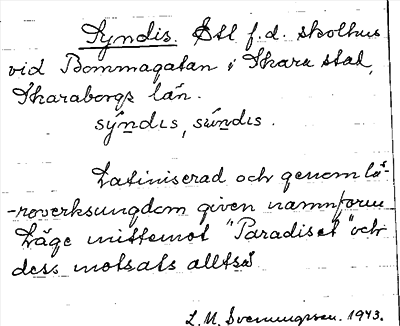 Syndis. Ett f.d. skolhus
vid Bommagatan i Skara stad,
Skaraborgs län.
sýndıs, sündıs.
Latiniserad och genom lä-
-roverksungdom given namnform
Läge mittemot "Paradiset" och
dess motsats alltså
L. M. Svenungsson. 1943.